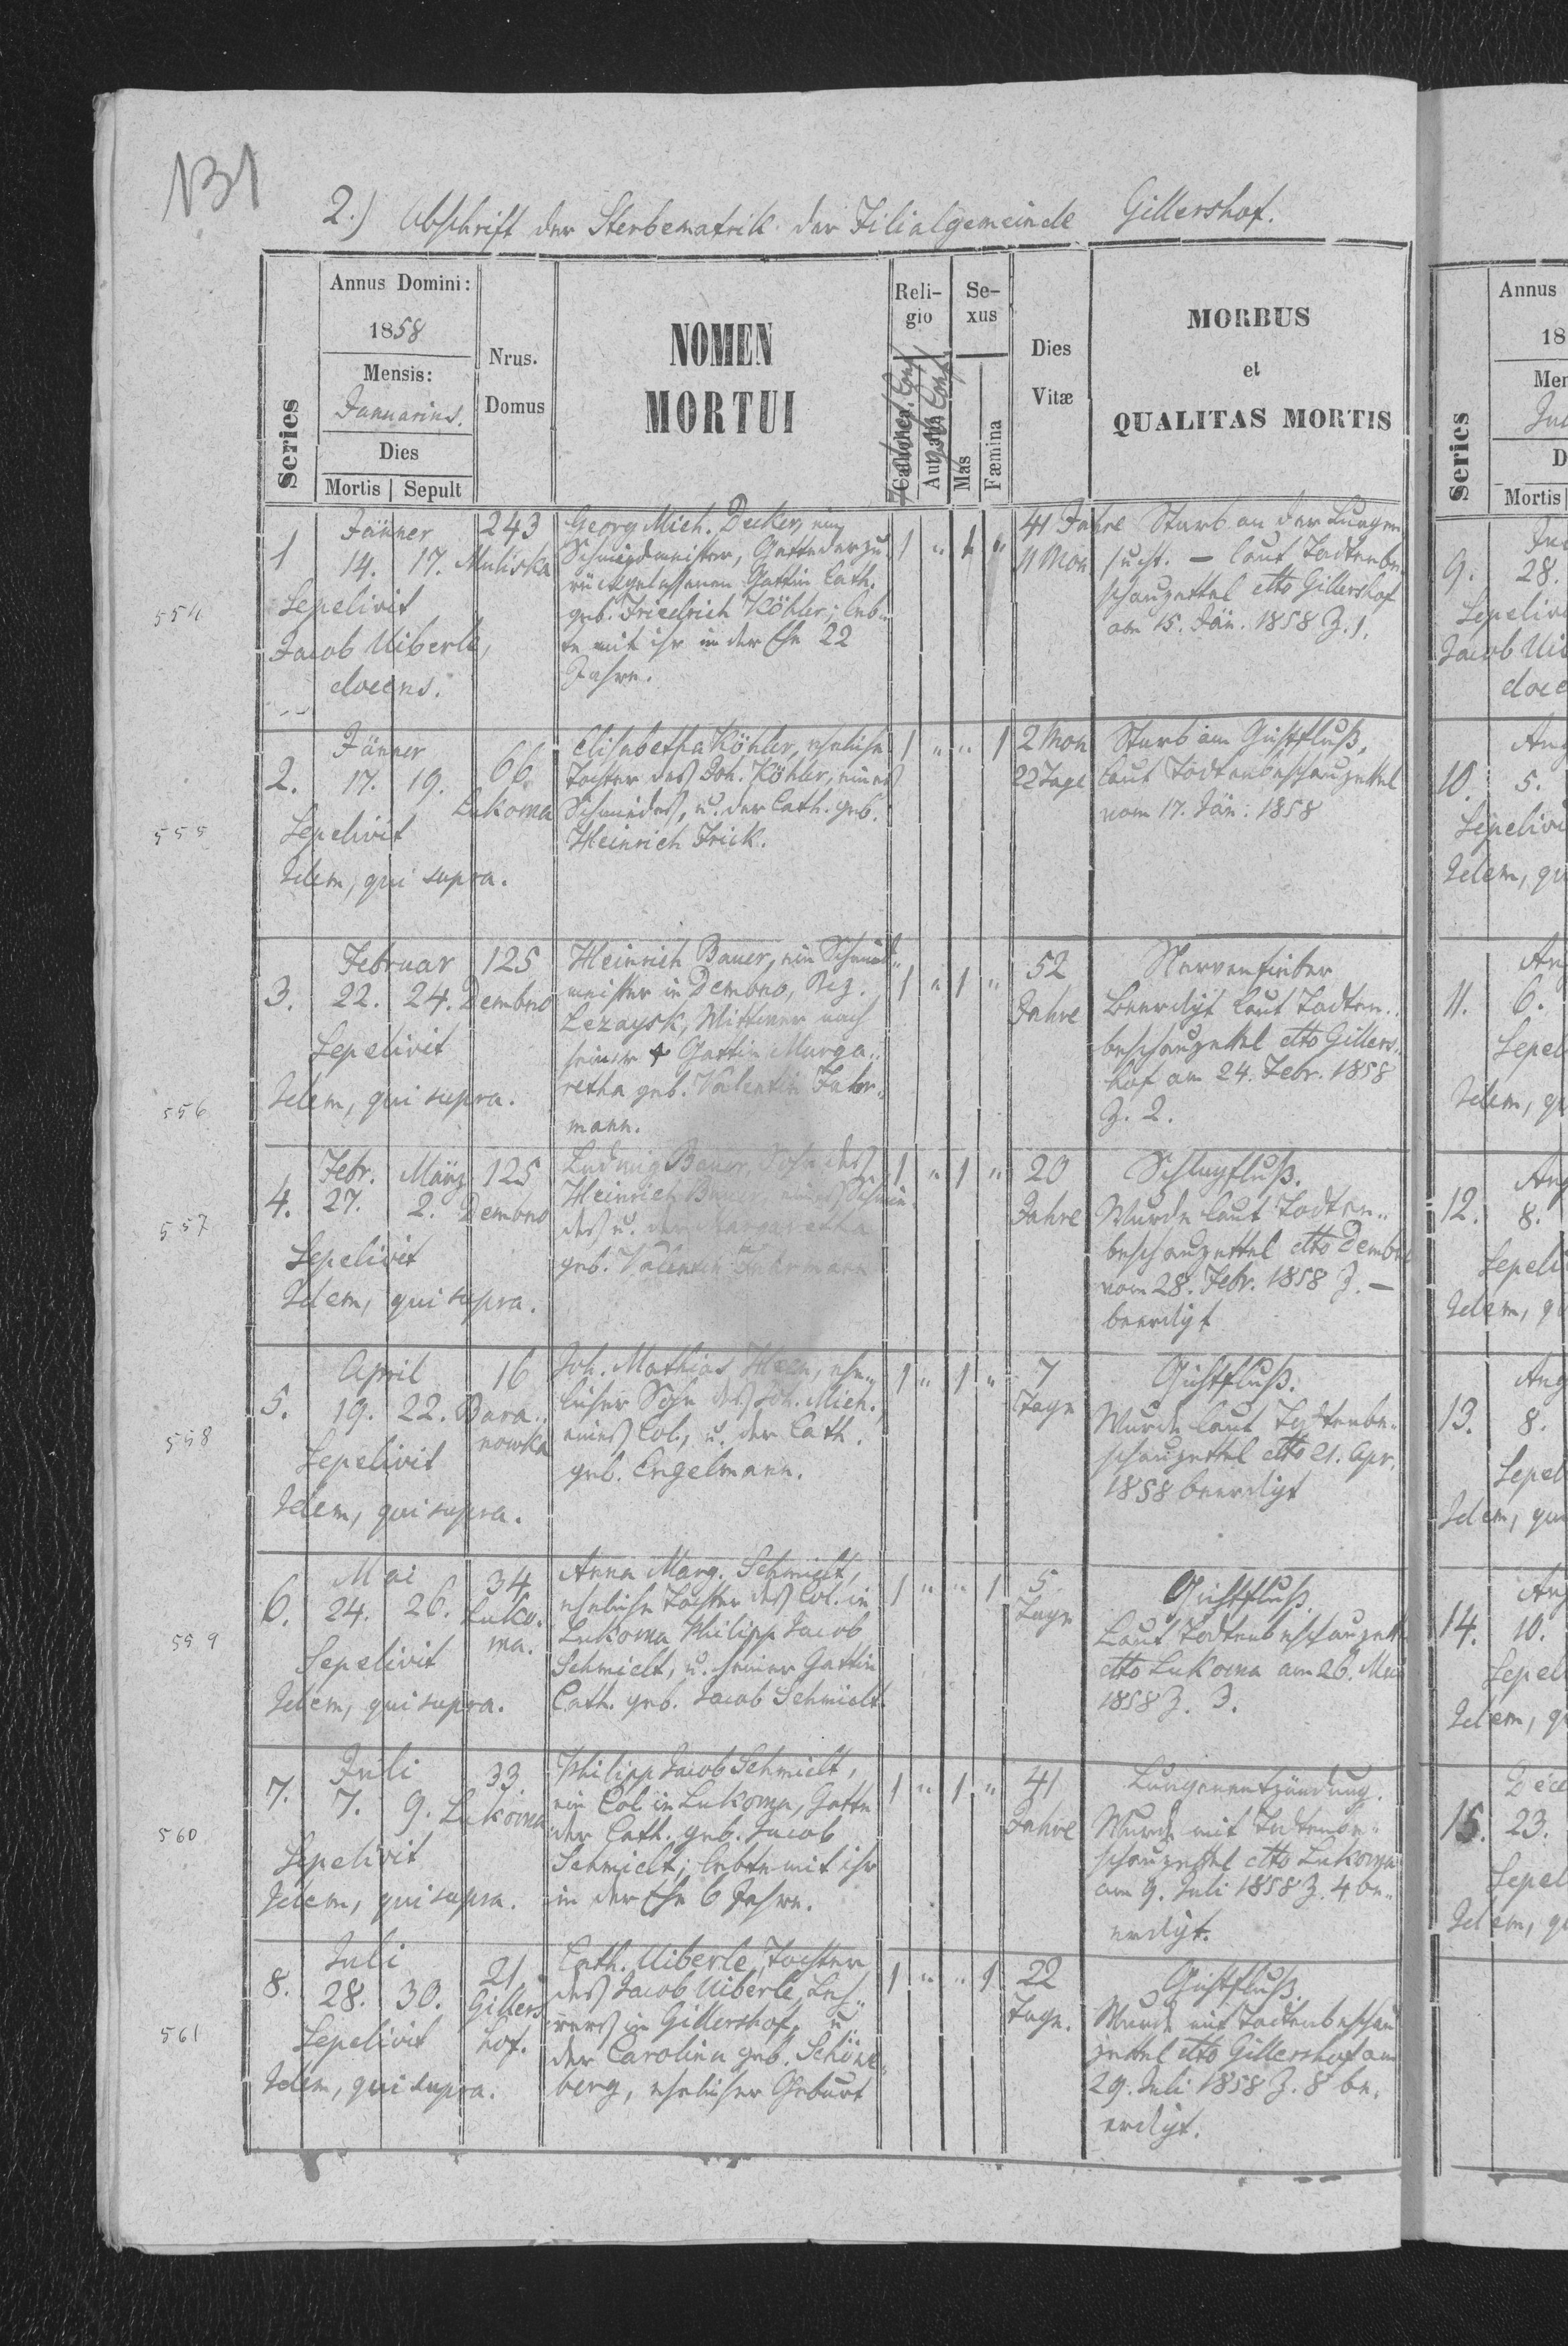 131
2.) Abschrift der Sterbematrik der Filialgemeinde Gillershof.
Series
Annus Domini:
1858
Mensis:
Januarius.
Dies
Mortis | Sepult
Nrus.
Domus
NOMEN
MORTUI
Religio
Catholica
Aut alia
Conf.
Conf.
Sexus
Mas
Fæmina
Dies
Vitæ
MORBUS
et
QUALITAS MORTIS
554
1
Jänner
14. 17.
Sepelivit
Jacob Uiberle,
docens.
243
Muliska
Georg Mich. Decker, ein
Schmiedmeister, Gatte der zu
rückgelassenen Gattin Cath.
geb. Friedrich Köhler; leb-
te mit ihr in der Ehe 22
Jahre.
1 " 1 "
41 Jahre
11 Mon
Starb an der Lungen
sucht. – laut Todtenbe-
schauzettel dtto Gillershof
am 15. Jän. 1858 Z. 1.
555
2.
Jänner
17. 19.
Sepelivit
Idem, qui supra.
66
Lukoma
Elisabetha Köhler, eheliche
Tochter des Joh. Köhler, eines
Schmiedes, u. der Cath. geb.
Heinrich Frick.
1 " " 1
2 Mon
22 Tage
Starb am Gichtfluß,
laut Todtenbeschauzettel
vom 17. Jän: 1858
556
3.
Februar
22. 24.
Sepelivit
Idem, qui supra.
125
Dembno
Heinrich Bauer, ein Schmied-
meister in Dembno, Bez.
Lezaysk, Wittwer nach
seiner † Gattin Marga-
retha geb. Valentin Fuhr-
mann.
1 " 1 "
52
Jahre
Nervenfieber
Beerdigt laut Todten-
beschauzettel dtto Gillers-
hof am 24. Febr. 1858
Z. 2.
557
4.
Febr. März
27. 2.
Sepelivit
Idem, qui supra.
125
Dembno
Ludwig Bauer, Sohn des
Heinrich Bauer, eines Schmie-
des u. der Margaretha
geb. Valentin Fuhrmann
1 " 1 "
20
Jahre
Schlagfluß.
Wurde laut Todten-
beschauzettel dtto Dembno
vom 28. Febr. 1858 Z. –
beerdigt
558
5.
April
19. 22.
Sepelivit
Idem, qui supra.
16
Bara-
nowka
Joh. Mathias, ehe-
licher Sohn des Joh. Mich.
eines Col., u. der Cath.
geb. Engelmann.
1 " 1 "
7
Tage
Gichtfluß.
Wurde laut Todtenbe-
schauzettel dtto 21. Apr.
1858 beerdigt
559
6.
Mai
24. 26.
Sepelivit
Idem, qui supra.
34
Luko-
ma.
Anna Marg. Schmidt,
eheliche Tochter des Col. in
Lukoma Philipp Jacob
Schmidt, u. seiner Gattin
Cath. geb. Jacob Schmidt.
1 " " 1
5
Tage
Gichtfluß.
Laut Todtenbeschauzett
dtto Lukoma am 26. Mai
1858 Z. 3.
560
7.
Juli
7. 9.
Sepelivit
Idem, qui supra.
33.
Lukoma
Philipp Jacob Schmidt,
ein Col. in Lukoma, Gatte
der Cath. geb. Jacob
Schmidt; lebte mit ihr
in der Ehe 6 Jahre.
1 " 1 "
41
Jahre
Lungenentzündung.
Wurde mit Todtenbe-
schauzettel dtto Lukoma
am 9. Juli 1858 Z. 4 be-
erdigt.
561
8.
Juli
28. 30.
Sepelivit
Idem, qui supra.
21.
Gillers
hof.
Cath. Uiberle, Tochter
des Jacob Uiberle, Leh-
rers in Gillershof, u.
der Carolina geb. Schöne-
berg, ehelicher Geburt
1 " " 1
22
Tage.
Gichtfluß.
Wurde mit Todtenbeschau
zettel dtto Gillershof am
29. Juli 1858 Z. 8 be-
erdigt.
Series
Annus
18
Men
D
Mortis
9.
28.
Jacob Uib
doce
10.
5.
Idem, qu
11.
6.
Sepel
Idem, qu
12.
8.
Sepeli
Idem, qu
13.
8.
Sepel
Idem, qui
14.
10.
Sepel
Idem, q
15.
Dec
23.
Sepel
Idem, q